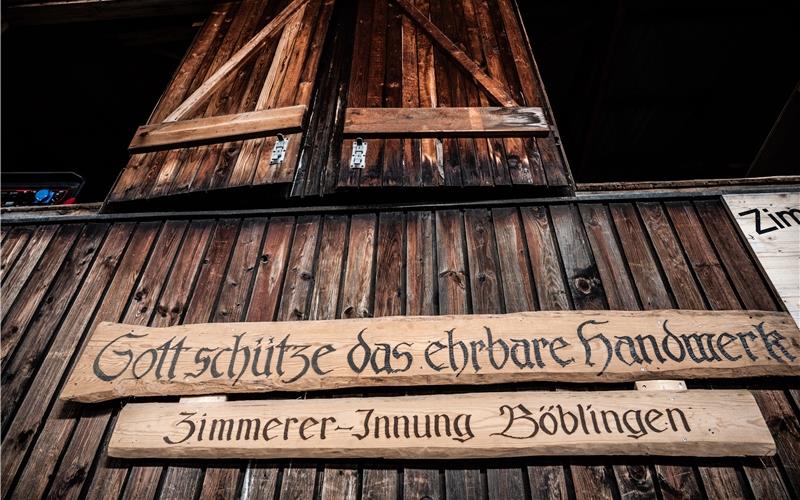 Zim
Gott schütze das ehrbare Handwerk
Zimmerer-Innung Böblingen